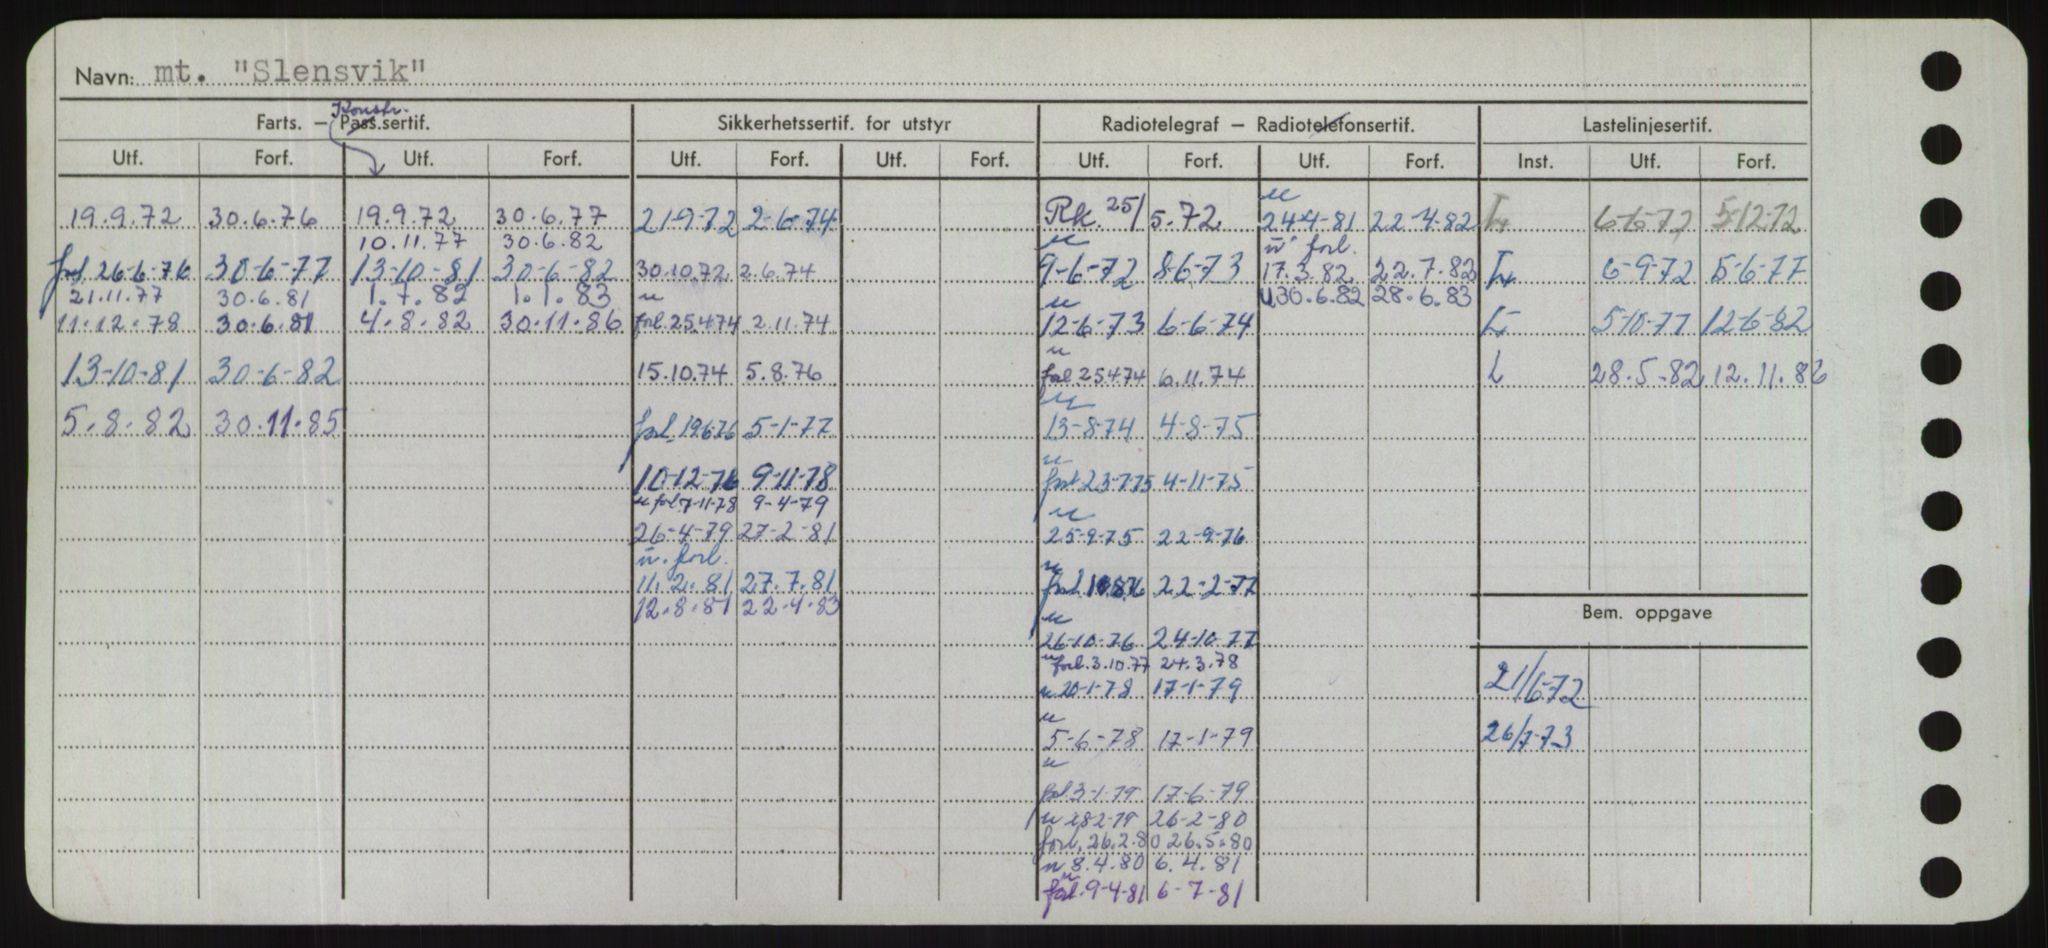 Navn: mt. "Slensvik"
Konstr.
Farts. — Pass.sertif. Sikkerhetssertif. for utstyr Radiotelegraf — Radiotelefonsertif. Lastelinjesertif.
Utf. Forf. Utf. Forf. Utf. Forf. Utf. Forf. Utf. Forf. Utf. Forf. Inst. Utf. Forf.
u
19.9.72 30.6.76 19.9.72 30.6.77 21-9-72 2-6-74 Rk. 25/5.72 24-4-81 22-4-82 L 6-6-72 5-12-72
10.11.77 30.6.82 u u forl.
forl. 26-6-76 30-6-77 13-10-81 30-6-82 30.10.72 2.6.74 9-6-72 8-6-73 17.3.82 22.7.82 L 6-9-72 5-6-77
21.11.77 30.6.81 1.7.82 1.1.83 u u u 30.6.82 28.6.83
11.12.78 30.6.81 4.8.82 30.11.86 forl 25.4.74 2.11.74 12-6-73 6-6-74 L 5-10-77 12-6-82
u
13-10-81 30-6-82 15.10.74 5.8.76 forl 25.4.74 6.11.74 L 28.5.82 12.11.86
u
5.8.82 30.11.85 forl. 19.6.76 5-1-77 13-8-74 4-8-75
u
10-12-76 9-11-78 forl 23-7-75 4-11-75
u forl 7-11-78 9-4-79 u
26-4-79 27-2-81 25-9-75 22-9-76
u. forl. u
11.2.81 27.7.81 forl. 22-2-77
12.8.81 22.4.83 u
Bem. oppgave
26-10-76 24-10-77
u forl. 3.10.77 24.3.78
u 20-1-78 17-1-79 21/6-72
u
5-6-78 17-1-79 26/7-73
u
forl. 3-1-79 17-6-79
u 28-2-79 26-2-80
forl. 26.2.80 26.5.80
u 8.4.80 6.4.81
u
forl. 9-4-81 6-7-81